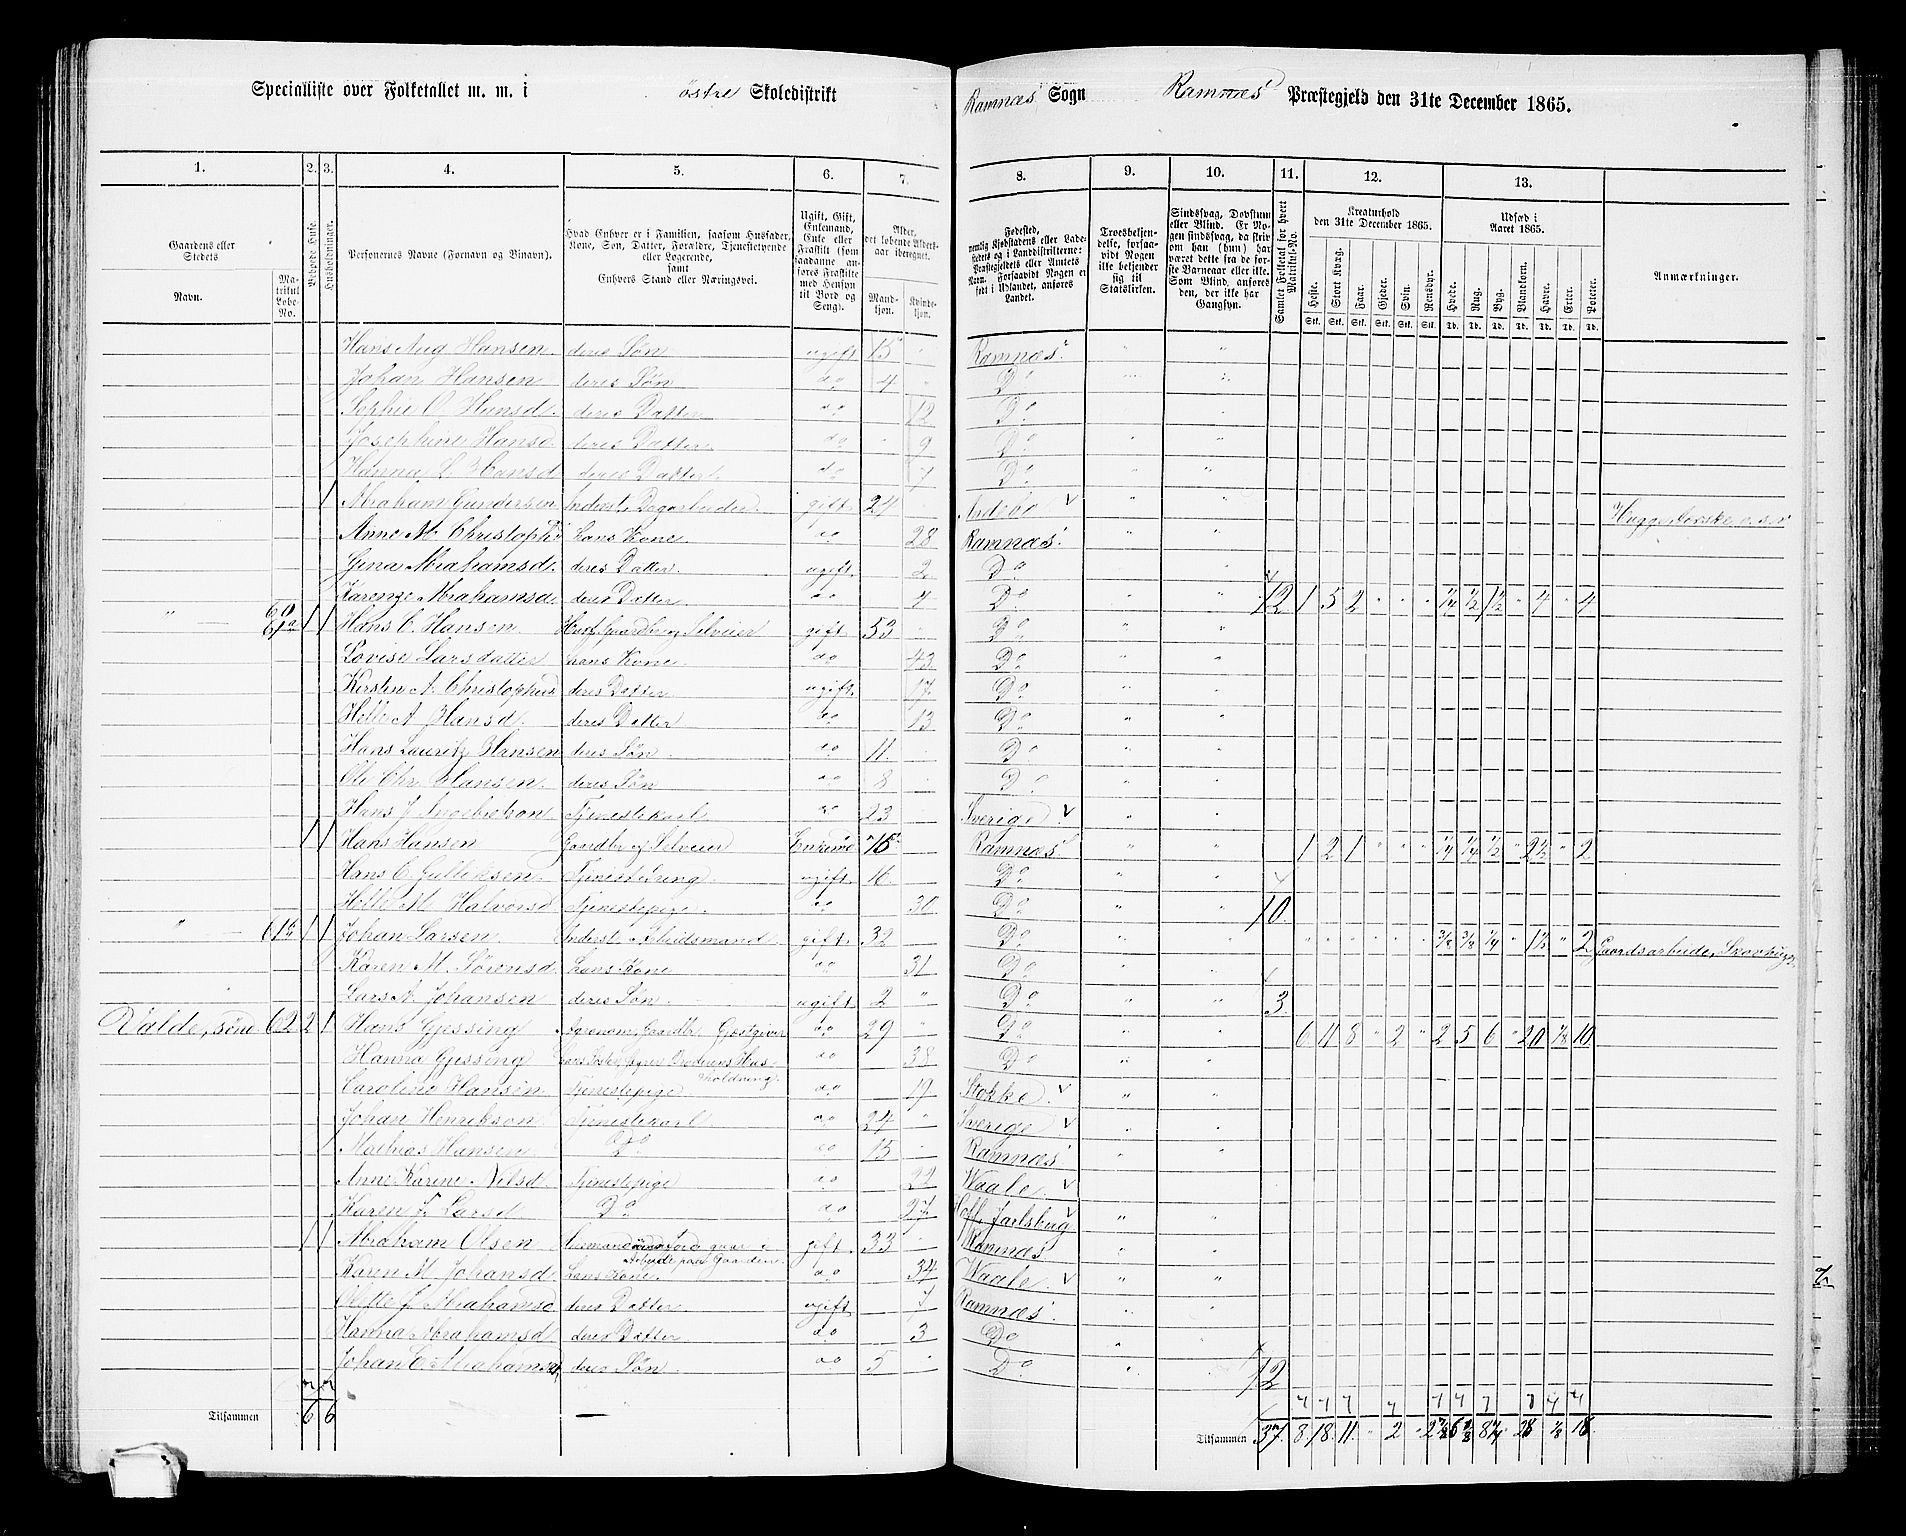 Specialliste over Folketallet m. m. i østre Skoledistrikt Ramnæs Sogn Ramnæs Præstegjeld den 31te December 1865.
1. 2. 3. 4. 5. 6. 7. 8. 9. 10. 11. 12. 13.
Gaardens eller Stedets
Navn.
Matrikul Løbe-No.
Bebyede Huse.
Husholdninger.
Personernes Navne (Fornavn og Tilnavn).
Hvad Enhver er i Familien, saasom Husfader, Kone, Søn, Datter, Forældre, Tjenestetyende eller Logerende, samt Enhvers Stand eller Næringsvei.
Ugift, Gift, Enkemand, Enke eller Fraskilt
Alder, det løbende Aldersaar iberegnet.
Mandkjøn. Kvindekjøn.
Fødested,
Troesbekjendelse, forsaavidt Nogen ikke bekjender sig til Statskirken.
Sindssvag, Døvstum eller Blind.
Samlet Folketal for hvert Matrikul-No.
Kreaturhold den 31te December 1865.
Heste. Stort Kvæg. Faar. Gjeder. Svin. Rensdyr.
Udsæd i Aaret 1865.
Hvede. Rug. Byg. Blandkorn. Havre. Erter. Poteter.
Anmærkninger.
Hans Aug Hansen deres Søn ugift 15 Ramnæs
Johan Hansen deres Søn do 4 Do
Sophie O Hansd. deres Datter do 12 Do
Josephine Hansd. deres Datter do 9 Do
Hanna L Hansd deres Datter do 7 Do
1 Abraham Gundersen Inderst, Dagarbeider gift 24 Andebo
Anne M. Christophd hans Kone do 28 Ramnæs
Gina Abrahamsd. deres Datter ugift 2 Do
Karenze Abrahamsd. deres Datter do 4 Do 12 1 5 2 1/4 1/2 1 1/2 4 4
" 60 61a 1 1 Hans C. Hansen Husf. Gaardbr og Selveier gift 53 Do
Lovise Larsdatter hans Kone do 43 Do
Kersten A. Christophersd deres Datter ugift 17 Do
Helle A Hansd. deres Datter do 13 Do
Hans Lauritz Hansen deres Søn do 11 Do
Ole Chr. Hansen deres Søn do 8 Do
Hans J Tjenestekarl do 23 Sverige
1 1 Hans Hansen Gaardbr og Selveier Enkemd 75 Ramnæs 1 2 1 1/4 1/4 1/2 2 1/2 2
Hans C. Gulliksen Tjenestedreng ugift 16 Do
Helle M Halvorsd Tjenestepige do 30 Do 10
" 61b 1 1 Johan Larsen Inderst Arbeidsmand gift 32 Do 3/8 3/8 1/4 1 1/2 2 Gaardsarbeide, Skovhugg.
Karen M. Sørensd hans Kone do 31 Do
Lars A. Johansen deres Søn ugift 2 Do 3
Valde, søndr 62 2 1 Hans Gjessing Agronom, Gaardbr. Gjæstgiver do 29 Do 6 11 8 2 2 5 6 20 1/8 10
Hanna Gjessing hans Søster, Broderens Husholdning do 38 Do
Caroline Hansen Tjenestepige do 19 Stokke
Johan Henrikson Tjenestekarl do 24 Sverige
Mathias Hansen Do do 15 Ramnæs
Anne Karine Nilsd. Tjenestepige do 22 Waale
Karen F. Larsd Do do 27 Jarlsberg
1 1 Abraham Olsen Husmand Jord gaar i Arbeide paa Gaarden gift 33 Ramnæs
Karen M Johansd. hans Kone do 34 Waale
J. Abrahamsd deres Datter ugift 7 Ramnæs
Hanna Abrahamsd deres Datter do 3 Do
Johan C. Abrahamsen deres Søn do 5 Do 12
Tilsammen 6 6 Tilsammen 37 8 18 11 2 28 1/8 18